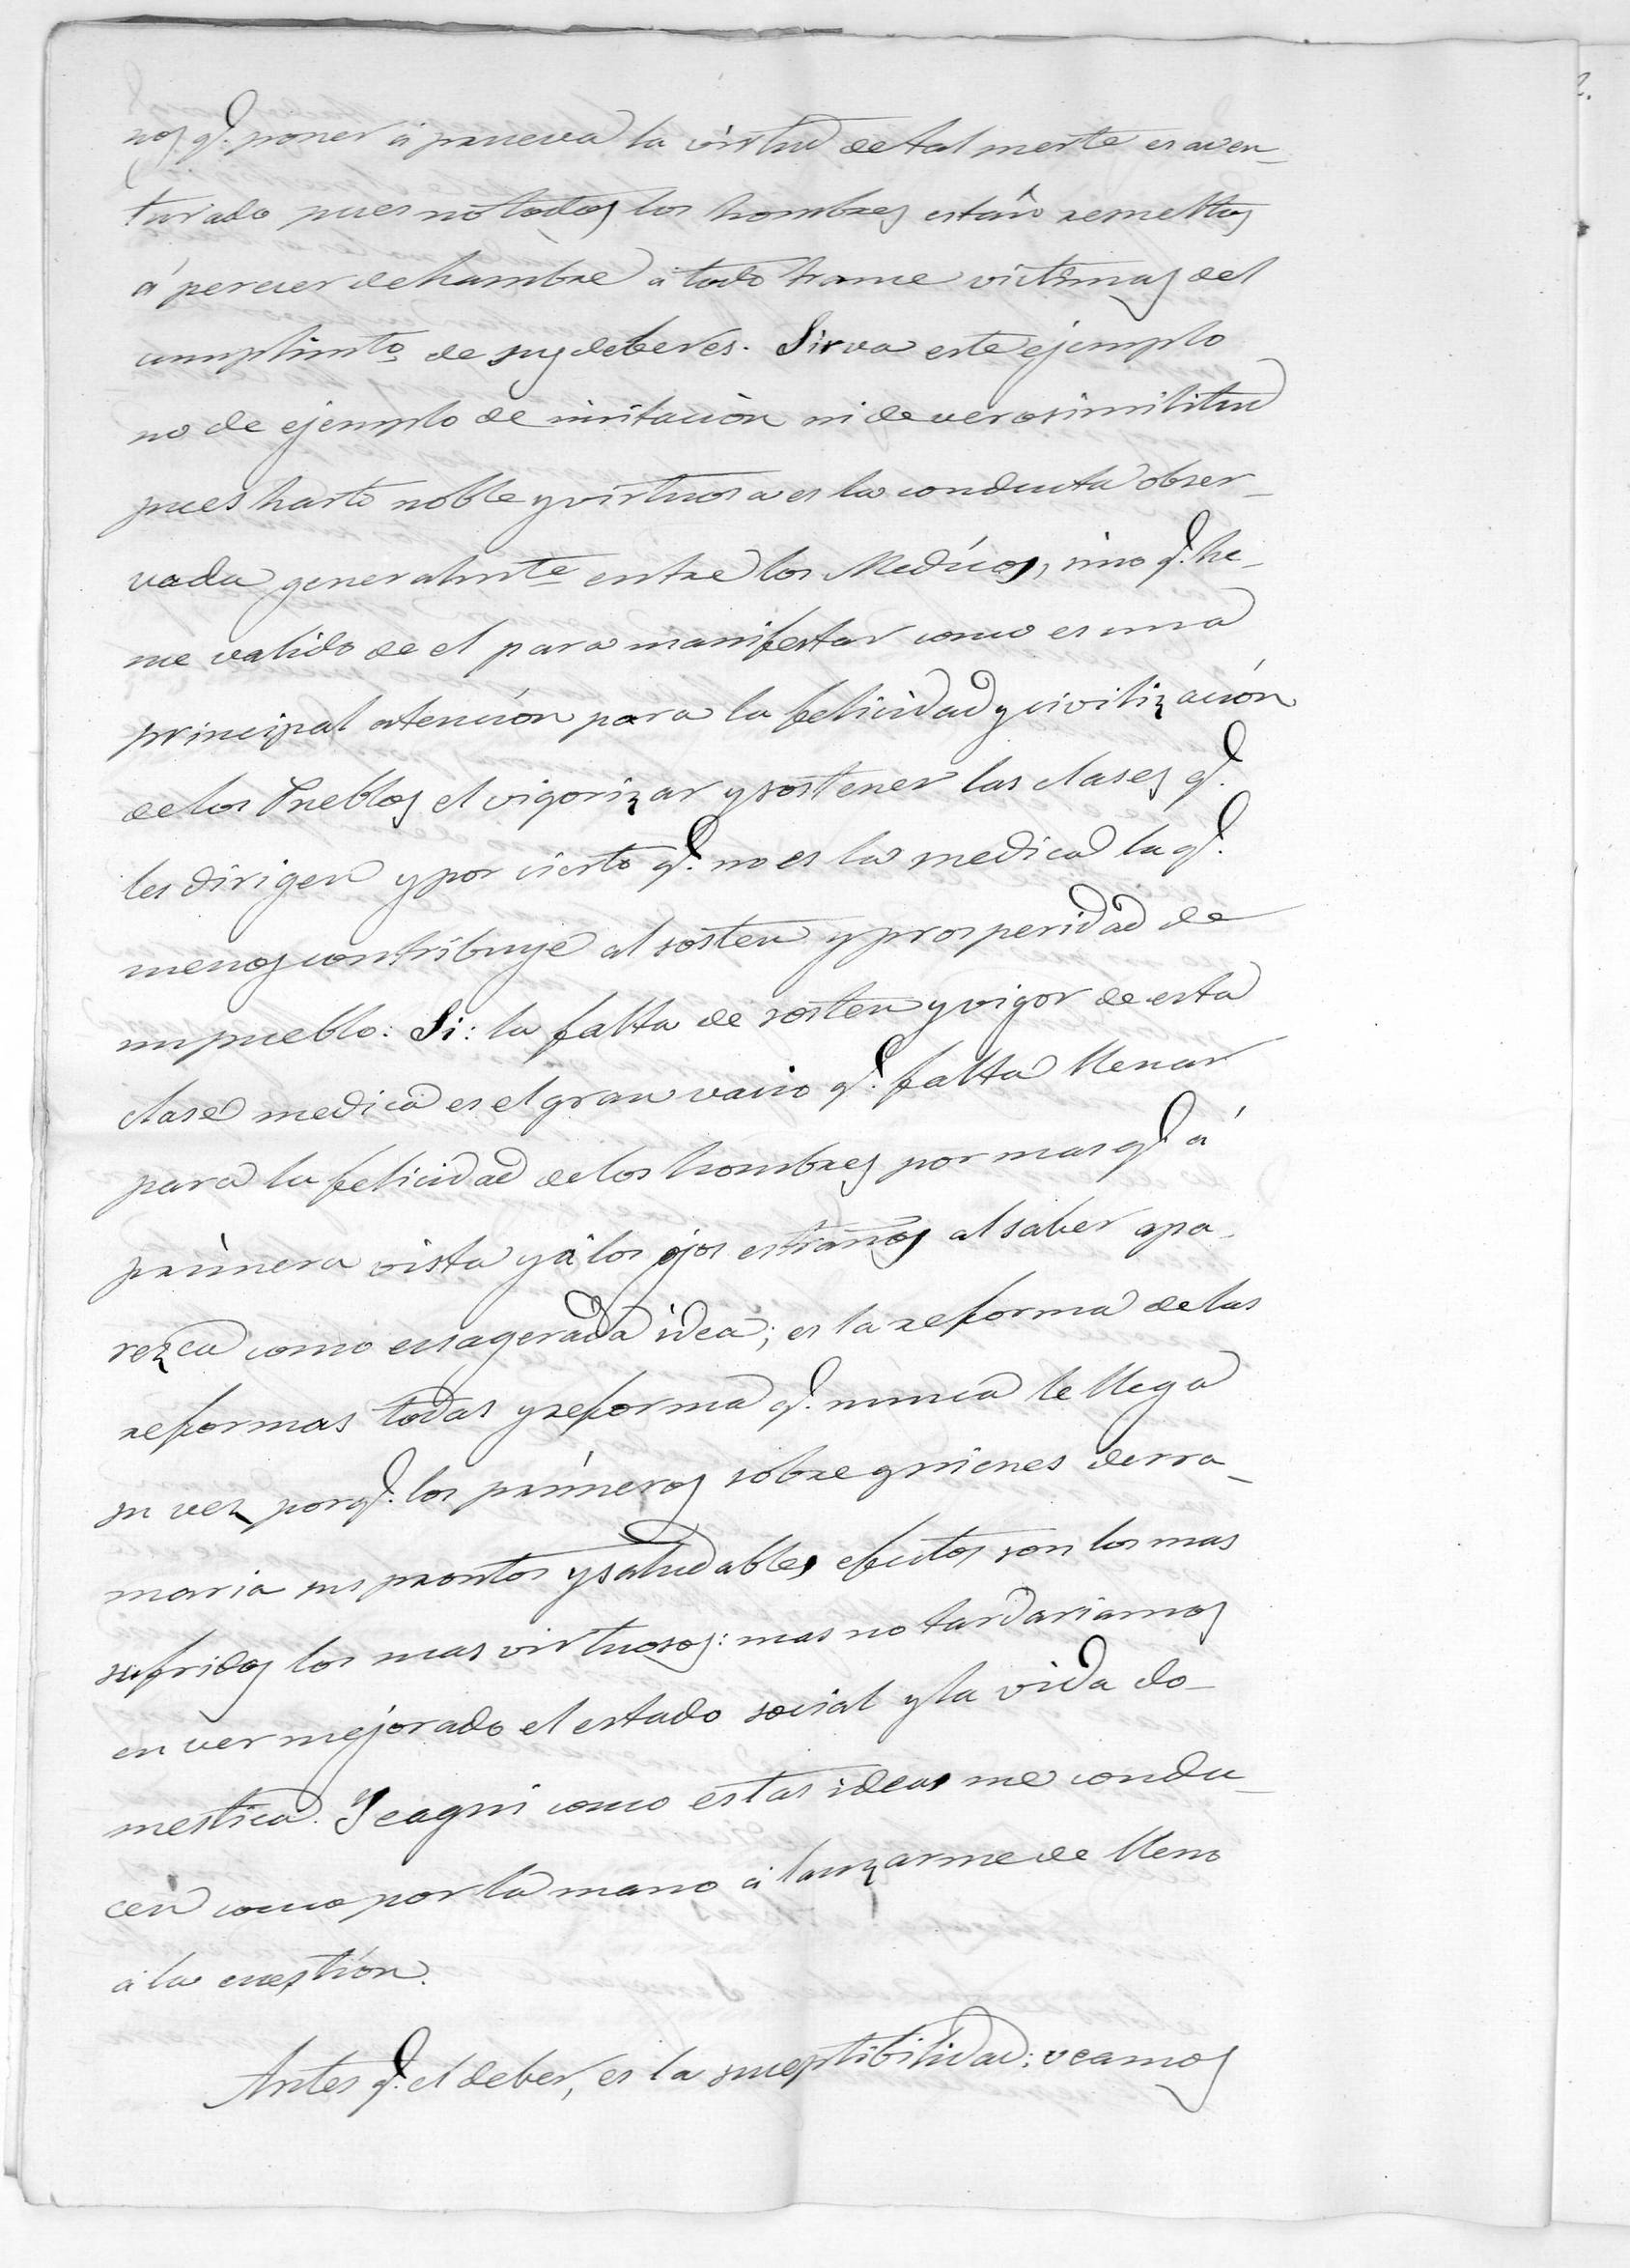 nos q.e poner á prueva la virtud de tal suerte es aven-
turado pues no todos los hombres están resueltos
á perecer de hambre á todo trance victimas del
cumplimto de sus deberes. Sirva este ejemplo
no de ejemplo de imitación ni de verosimilitud
pues harto noble y virtuosa es la conducta obser-
vada generalmte entre los Medicos, sino q.e he-
me valido de el para manifestar como es una
principal atención para la felicidad y civilización
de los Pueblos el vigorizar y sostener las clases q.e
les dirigen y por cierto q.e no es la medica la q.e
menos contribuye al sosten y prosperidad de
un pueblo: Si: la falta de sosten y vigor de esta
clase medica es el gran vacio q.e falta llenar
para la felicidad de los hombres por mas q.e á
primera vista y á los ojos estraños al saber apa-
rezca como exsagerada idea; es la reforma de las
reformas todas y reforma q.e nunca le llega
su vez porq.e los primeros sobre quienes derra-
maria sus prontos y saludables efectos son los mas
sufridos los mas virtuosos: mas no tardariamos
en ver mejorado el estado social y la vida do-
mestica. Y eaqui como estas ideas me condu-
cen como por la mano á lanzarme de lleno
á la cuestión.
Antes q.e el deber, es la suceptibilidad: veamos